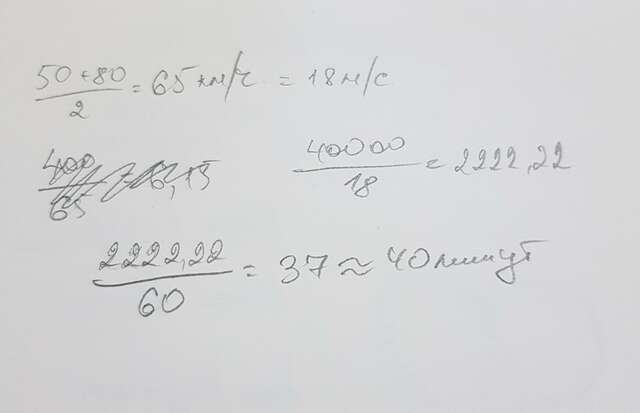 50+80/2 = 65 км/ч = 18 м/с
400/65 6,15
40000/18 = 2222,22
2222,22/60 = 37 ≈ 40 минут